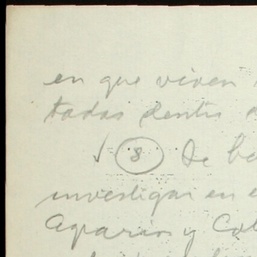 en que viven
tadas dentro
√ 8 De ba
investigar en e
Agrarios y Col